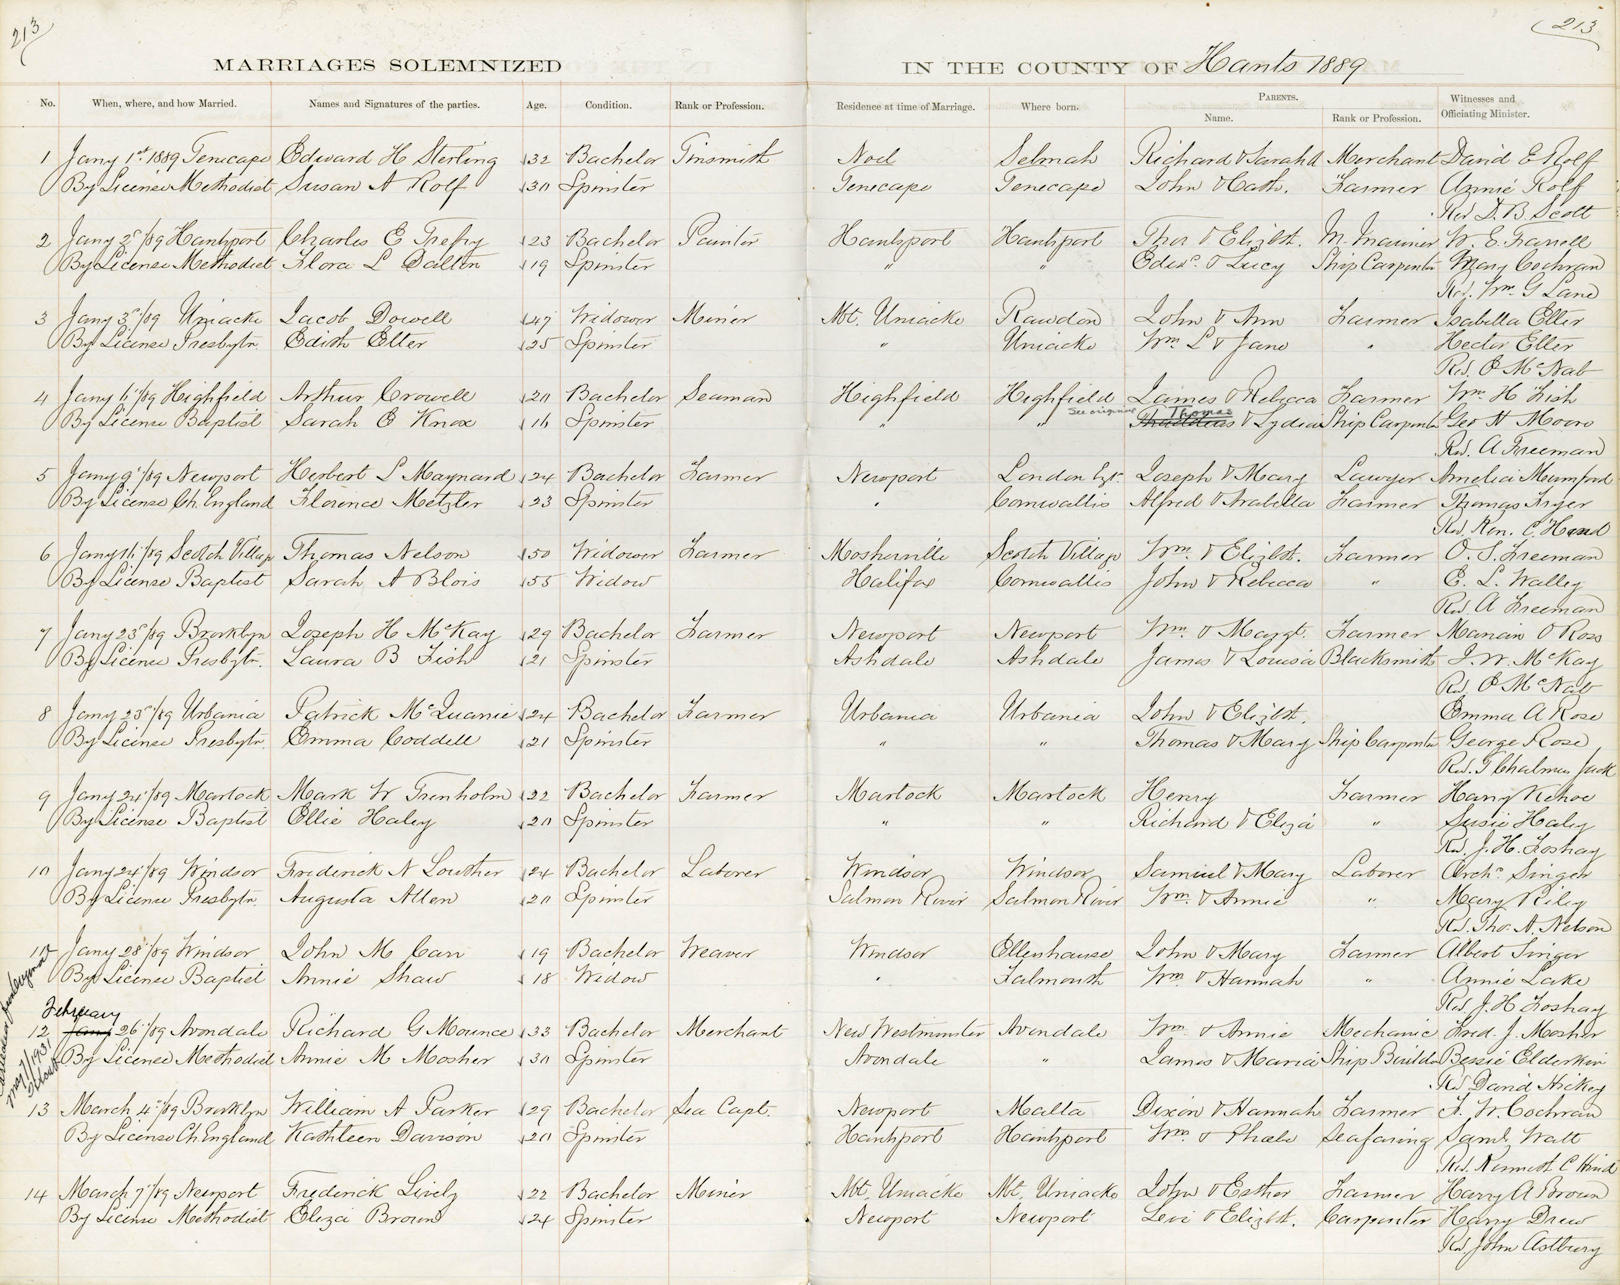 213
213
MARRIAGES SOLEMNIZED IN THE COUNTY OF Hants 1889
No. When, where, and how Married. Names and Signatures of the parties. Age. Condition. Rank or Profession. Residence at time of Marriage. Where born. PARENTS. Name. Rank or Profession. Witnesses and Officiating Minister.
1 Jany 1st 1889 Tenecape Edward H Sterling 32 Bachelor Tinsmith Noel Selmah Richard & Sarah Merchant David E Rolf
By License Methodist Susan A Rolf 30 Spinster Tenecape Tenecape John & Cath. Farmer Annie Rolf
Rev D. B. Scott
2 Jany 2d/89 Hantsport Charles E Trefry 23 Bachelor Painter Hantsport Hantsport Thos & Elizbt. M. Mariner W. E. Farrell
By License Methodist Flora L Dalton 19 Spinster " " Edwd. & Lucy Ship Carpenter Mary Cochran
Rev. Wm. G Lane
3 Jany 3d/89 Uniacke Jacob Dowell 47 Widower Miner Mt. Uniacke Rawdon John & Ann Farmer Isabella Etter
By License Presbytn. Edith Etter 25 Spinster " Uniacke Wm L & Jane " Hector Etter
Rev. P McNab
4 Jany 16/89 Highfield Arthur Crowell 20 Bachelor Seaman Highfield Highfield James & Rebecca Farmer Wm H Fish
See original Thomas
By License Baptist Sarah E Knox 16 Spinster " " Thaddeus & Lydia Ship Carpenter Geo H Moore
Rev. A Freeman
5 Jany 9/89 Newport Herbert L Maynard 24 Bachelor Farmer Newport London Joseph & Mary Lawyer Amelia Mumford
By License Ch. England Florence Metzler 23 Spinster " Cornwallis Alfred & Arabella Farmer Thomas Fryer
Rev. Ken. C. Hind
6 Jany 16/89 Scotch Village Thomas Nelson 50 Widower Farmer Mosherville Scotch Village Wm. & Elizbt. Farmer O. S. Freeman
By License Baptist Sarah A Blois 55 Widow Halifax Cornwallis John & Rebecca " E. L. Walley
Rev. A Freeman
7 Jany 23d/89 Brooklyn Joseph H McKay 29 Bachelor Farmer Newport Newport Wm. & Margt. Farmer Marian O Ross
By License Presbytn. Laura B Fish 21 Spinster Ashdale Ashdale James & Louisa Blacksmith J. W. McKay
Rev. P McNab
8 Jany 23d/89 Urbania Patrick McQuanie 24 Bachelor Farmer Urbania Urbania John & Elizbt. Emma A Rose
By License Presbytn. Emma Coddell 21 Spinster " " Thomas & Mary Ship Carpenter George Rose
Rev. T Chalmers Jack
9 Jany 24/89 Martock Mark W Trenholm 22 Bachelor Farmer Martock Martock Henry Farmer Harry Kehoe
By License Baptist Ellie Haley 20 Spinster " " Richard & Eliza " Susie Haley
Rev. J. H. Foshay
10 Jany 24/89 Windsor Frederick N Lowther 24 Bachelor Laborer Windsor Windsor Samuel & Mary Laborer Archd. Singer
By License Presbytn. Augusta Allen 20 Spinster Salmon River Salmon River Wm. & Annie " Mary Riley
Rev. Tho. A. Nelson
11 Jany 28/89 Windsor John M Carr 19 Bachelor Weaver Windsor Ellenhouse John & Mary Farmer Albert Singer
By License Baptist Annie Shaw 18 Widow " Falmouth Wm. & Hannah " Annie Lake
Rev. J. H Foshay
February
12 Jany 26/89 Avondale Richard G Mounce 33 Bachelor Merchant New Westminster Avondale Wm & Annie Mechanic Fred. J. Mosher
By License Methodist Annie M Mosher 30 Spinster Avondale " James & Maria Ship Builder Bessie Elderkin
Rev. David Hickey
May 7/1931
13 March 4/89 Brooklyn William A Parker 29 Bachelor Sea Capt. Newport Malta Dixon & Hannah Farmer F. W. Cochran
By License Ch. England Kathleen Davison 20 Spinster Hantsport Hantsport Wm. & Phoebe Seafaring Saml. Watt
Rev. Kenneth C Hind
14 March 7/89 Newport Frederick Lively 22 Bachelor Miner Mt. Uniacke Mt. Uniacke John & Esther Farmer Harry A Brown
By License Methodist Eliza Brown 24 Spinster Newport Newport Levi & Elizbt. Carpenter Harry Drew
Rev. John Astbury